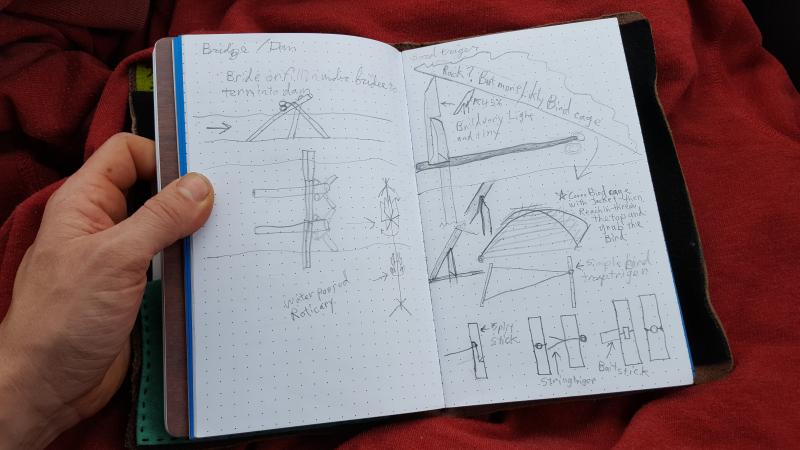 Bridge / Dam
Bride on fill in under bridge to
tern into dam
water powered
Roticary
Rock?, But more likly Bind cage
45%
Build very Light
and tiny
Cover Bind cage
with Jacket then
Reach in threw
the top and
grab the
Bird
Simple Bird
trap trigger
Split
stick
String triger
Bait
stick